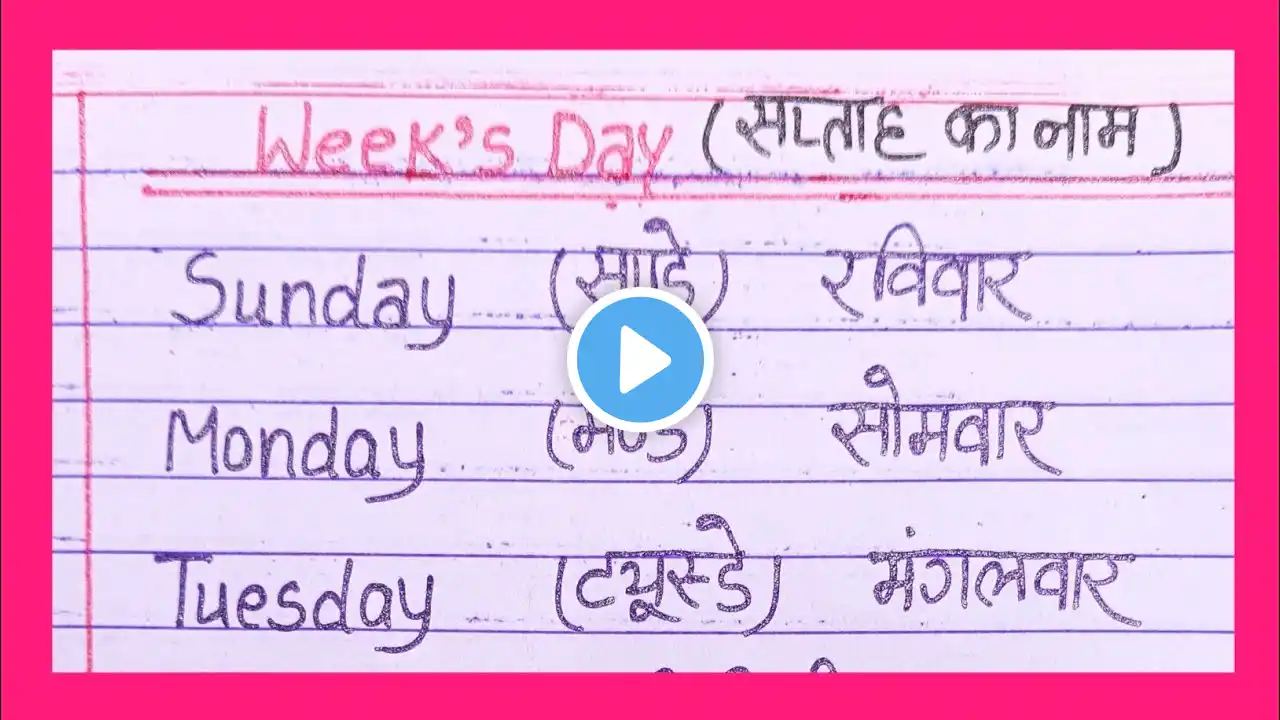 Week's Day (सप्ताह का नाम)
Sunday (सण्डे) रविवार
Monday सोमवार
Tuesday (ट्यूस्डे) मंगलवार